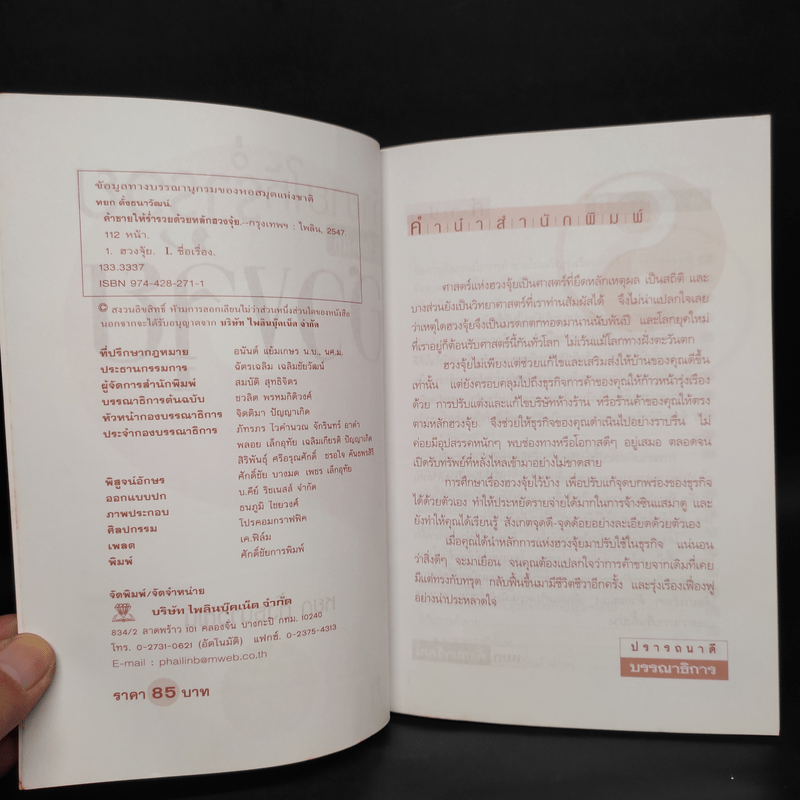 ข้อมูลทางบรรณานุกรมของหอสมุดแห่งชาติ
หยก ตั้งธนาวัฒน์.
ค้าขายให้ร่ำรวยด้วยหลักฮวงจุ้ย.--กรุงเทพฯ : ไพลิน, 2547
112 หน้า.
1. ฮวงจุ้ย. I. ชื่อเรื่อง.
133.3337
ISBN 974-428-271-1
© สงวนลิขสิทธิ์ ห้ามการลอกเลียนไม่ว่าส่วนหนึ่งส่วนใดของหนังสือ
นอกจากจะได้รับอนุญาตจาก บริษัท ไพลินบุ๊คเน็ต จำกัด
ที่ปรึกษากฎหมาย อนันต์ แย้มเกษร น.บ., นศ.ม.
ประธานกรรมการ ฉัตรเฉลิม เฉลิมชัยวัฒน์
ผู้จัดการสำนักพิมพ์ สมบัติ สุทธิจิตร
บรรณาธิการต้นฉบับ ชวลิต พรหมก็ติวงค์
หัวหน้ากองบรรณาธิการ จิตติมา ปัญญาเกิด
ประจำกองบรรณาธิการ ภัทรภร ไวคำนวณ จักรินทร์ อาดำ
พลอย เล็กอุทัย เฉลิมเกียรติ ปัญญาเกิด
สิริพันธุ์ ศรีอรุณศักดิ์
พิสูจน์อักษร ศักดิ์ชัย บางมด เพชร เล็กอุทัย
ออกแบบปก บ.คีย์ วิชเนลส์ จำกัด
ภาพประกอบ ธนภูมิ ไชยวงศ์
ศิลปกรรม โปรคอมกราฟฟิค
เพลต เค.ฟิล์ม
พิมพ์ ศักดิ์ชัยการพิมพ์
จัดพิมพ์/จัดจำหน่าย
บริษัท ไพลินบุ๊คเน็ต จำกัด
834/2 ลาดพร้าว 101 คลองจั่น บางกะปิ กทม. 10240
โทร. 0-2731-0621 (อัตโนมัติ) แฟกซ์. 0-2375-4313
E-mail : phailinb@mweb.co.th
ราคา 85 บาท
คำนำสำนักพิมพ์
ศาสตร์แห่งฮวงจุ้ยเป็นศาสตร์ที่ยึดหลักเหตุผล เป็นสถิติ และ
บางส่วนยังเป็นวิทยาศาสตร์ที่เราท่านสัมผัสได้ จึงไม่น่าแปลกใจเลย
ว่าเหตุใดฮวงจุ้ยจึงเป็นมรดกตกทอดมานานนับพันปี และโลกยุคใหม่
ที่เราอยู่ก็ต้อนรับศาสตร์นี้กันทั่วโลก ไม่เว้นแม้โลกทางฝั่งตะวันตก
ฮวงจุ้ยไม่เพียงแต่ช่วยแก้ไขและเสริมส่งให้บ้านของคุณดีขึ้น
เท่านั้น แต่ยังครอบคลุมไปถึงธุรกิจการค้าของคุณให้ก้าวหน้ารุ่งเรือง
ด้วย การปรับแต่งและแก้ไขบริษัทห้างร้าน หรือร้านค้าของคุณให้ตรง
ตามหลักฮวงจุ้ย จึงช่วยให้ธุรกิจของคุณดำเนินไปอย่างราบรื่น ไม่
ค่อยมีอุปสรรคหนักๆ พบช่องทางหรือโอกาสดีๆ อยู่เสมอ ตลอดจน
เปิดรับทรัพย์ที่หลั่งไหลเข้ามาอย่างไม่ขาดสาย
การศึกษาเรื่องฮวงจุ้ยไว้บ้าง เพื่อปรับแก้จุดบกพร่องของธุรกิจ
ได้ด้วยตัวเอง ทำให้ประหยัดรายจ่ายได้มากในการจ้างซินแสมาดู และ
ยังทำให้คุณได้เรียนรู้ สังเกตจุดดี-จุดด้อยอย่างละเอียดด้วยตัวเอง
เมื่อคุณได้นำหลักการแห่งฮวงจุ้ยมาปรับใช้ในธุรกิจ แน่นอน
ว่าสิ่งดีๆ จะมาเยือน จนคุณต้องแปลกใจว่าการค้าขายจากเดิมที่เคย
มีแต่ทรงกับทรุด กลับฟื้นขึ้นมามีชีวิตชีวาอีกครั้ง และรุ่งเรืองเฟื่องฟู
อย่างน่าประหลาดใจ
ปรารถนาดี
บรรณาธิการ